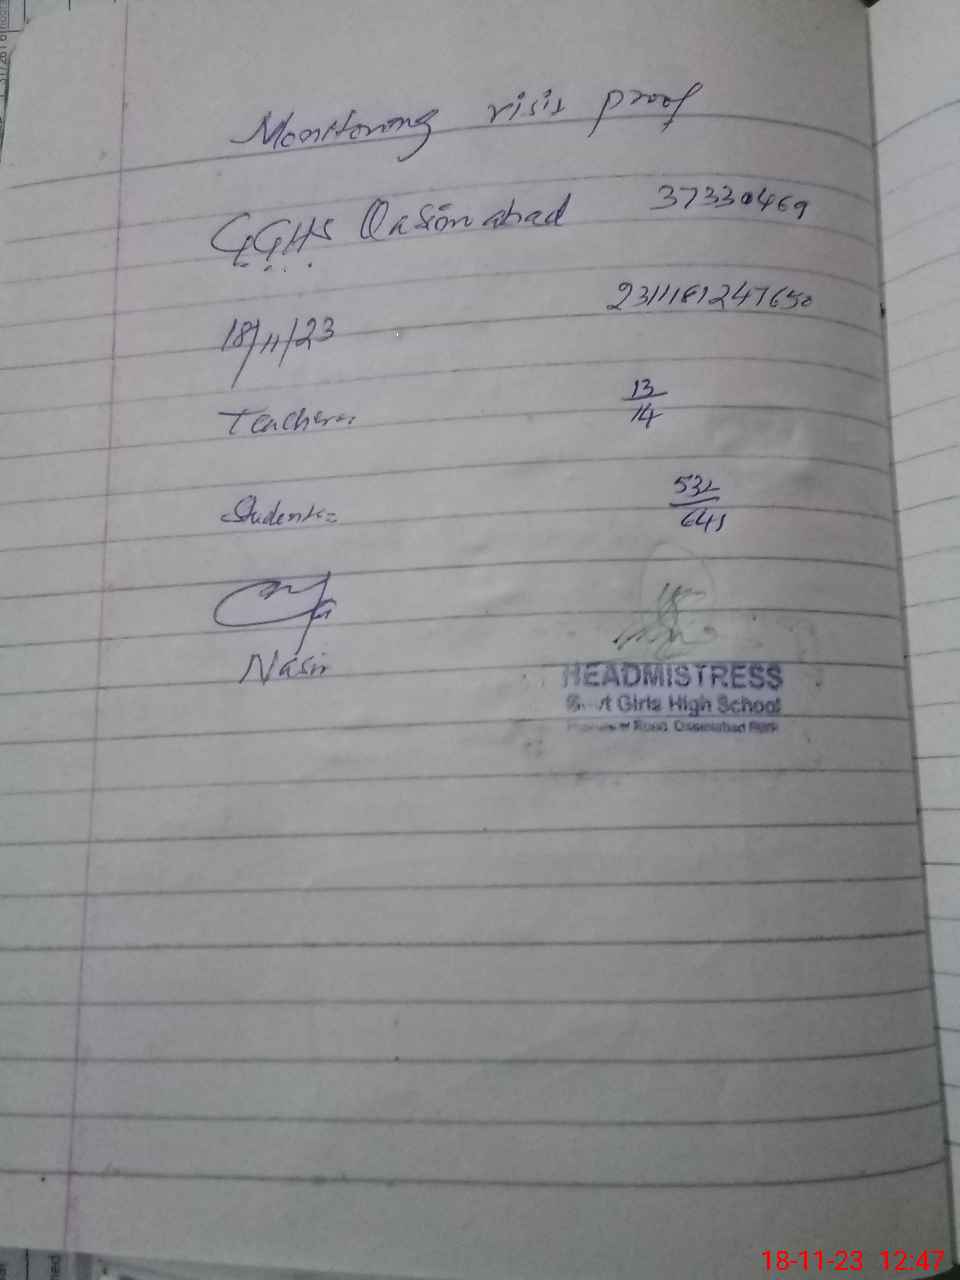 Monitoring visit proof
GGHS Qasim abad 37330469
18/11/23 2311181247650
Teachers 13/14
Students 532/641
Nasir
HEADMISTRESS
Govt Girls High School
Road, Qasimabad
18-11-23 12:47